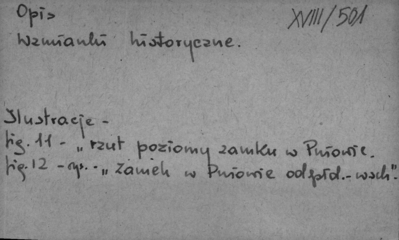 Opis
XVIII/501
Wzmianki historyczne.
Ilustracje -
fig. 11 - „rzut poziomy zamku w Pniowie.
fig. 12 - ryc. - „Zamek w Pniowie od płd.-wsch".